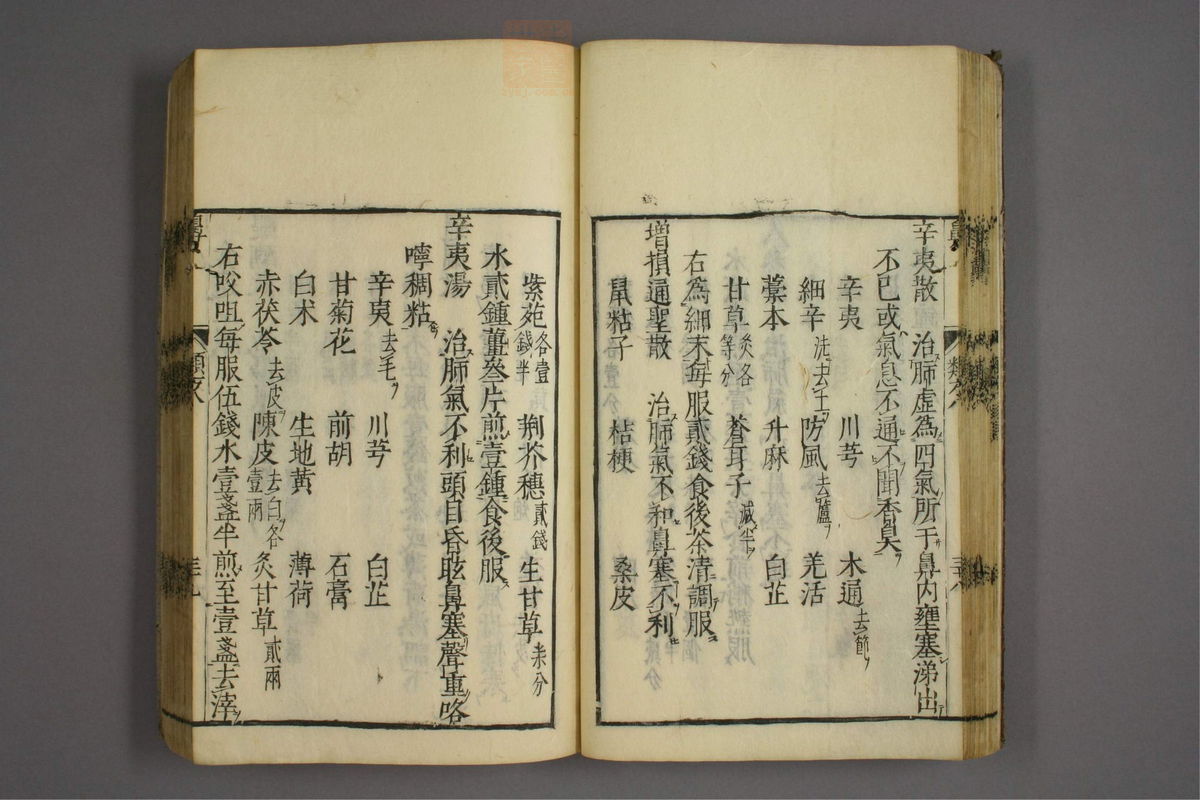 辛夷散　治肺虛為四氣所干鼻內壅塞涕出
不已或氣息不通不聞香臭
辛夷　川芎　木通去節
細辛洗去土　防風去蘆　羌活
藁本　升麻　白芷
甘草炙各等分　蒼耳子減半
右為細末每服貳錢食後茶清調服
增損通聖散　治肺氣不和鼻塞不利
鼠粘子　桔梗　桑皮
紫菀各壹錢半　荊芥穗貳錢　生甘草柒分
水貳鍾薑叄片煎壹鍾食後服
辛夷湯　治肺氣不利頭目昏眩鼻塞聲重咯
嚀稠粘
辛夷去毛　川芎　白芷
甘菊花　前胡　石膏
白朮　生地黃　薄荷
赤茯苓去皮　陳皮去白各壹兩　炙甘草貳兩
右㕮咀每服伍錢水壹盞半煎至壹盞去滓
鼻　類卷八